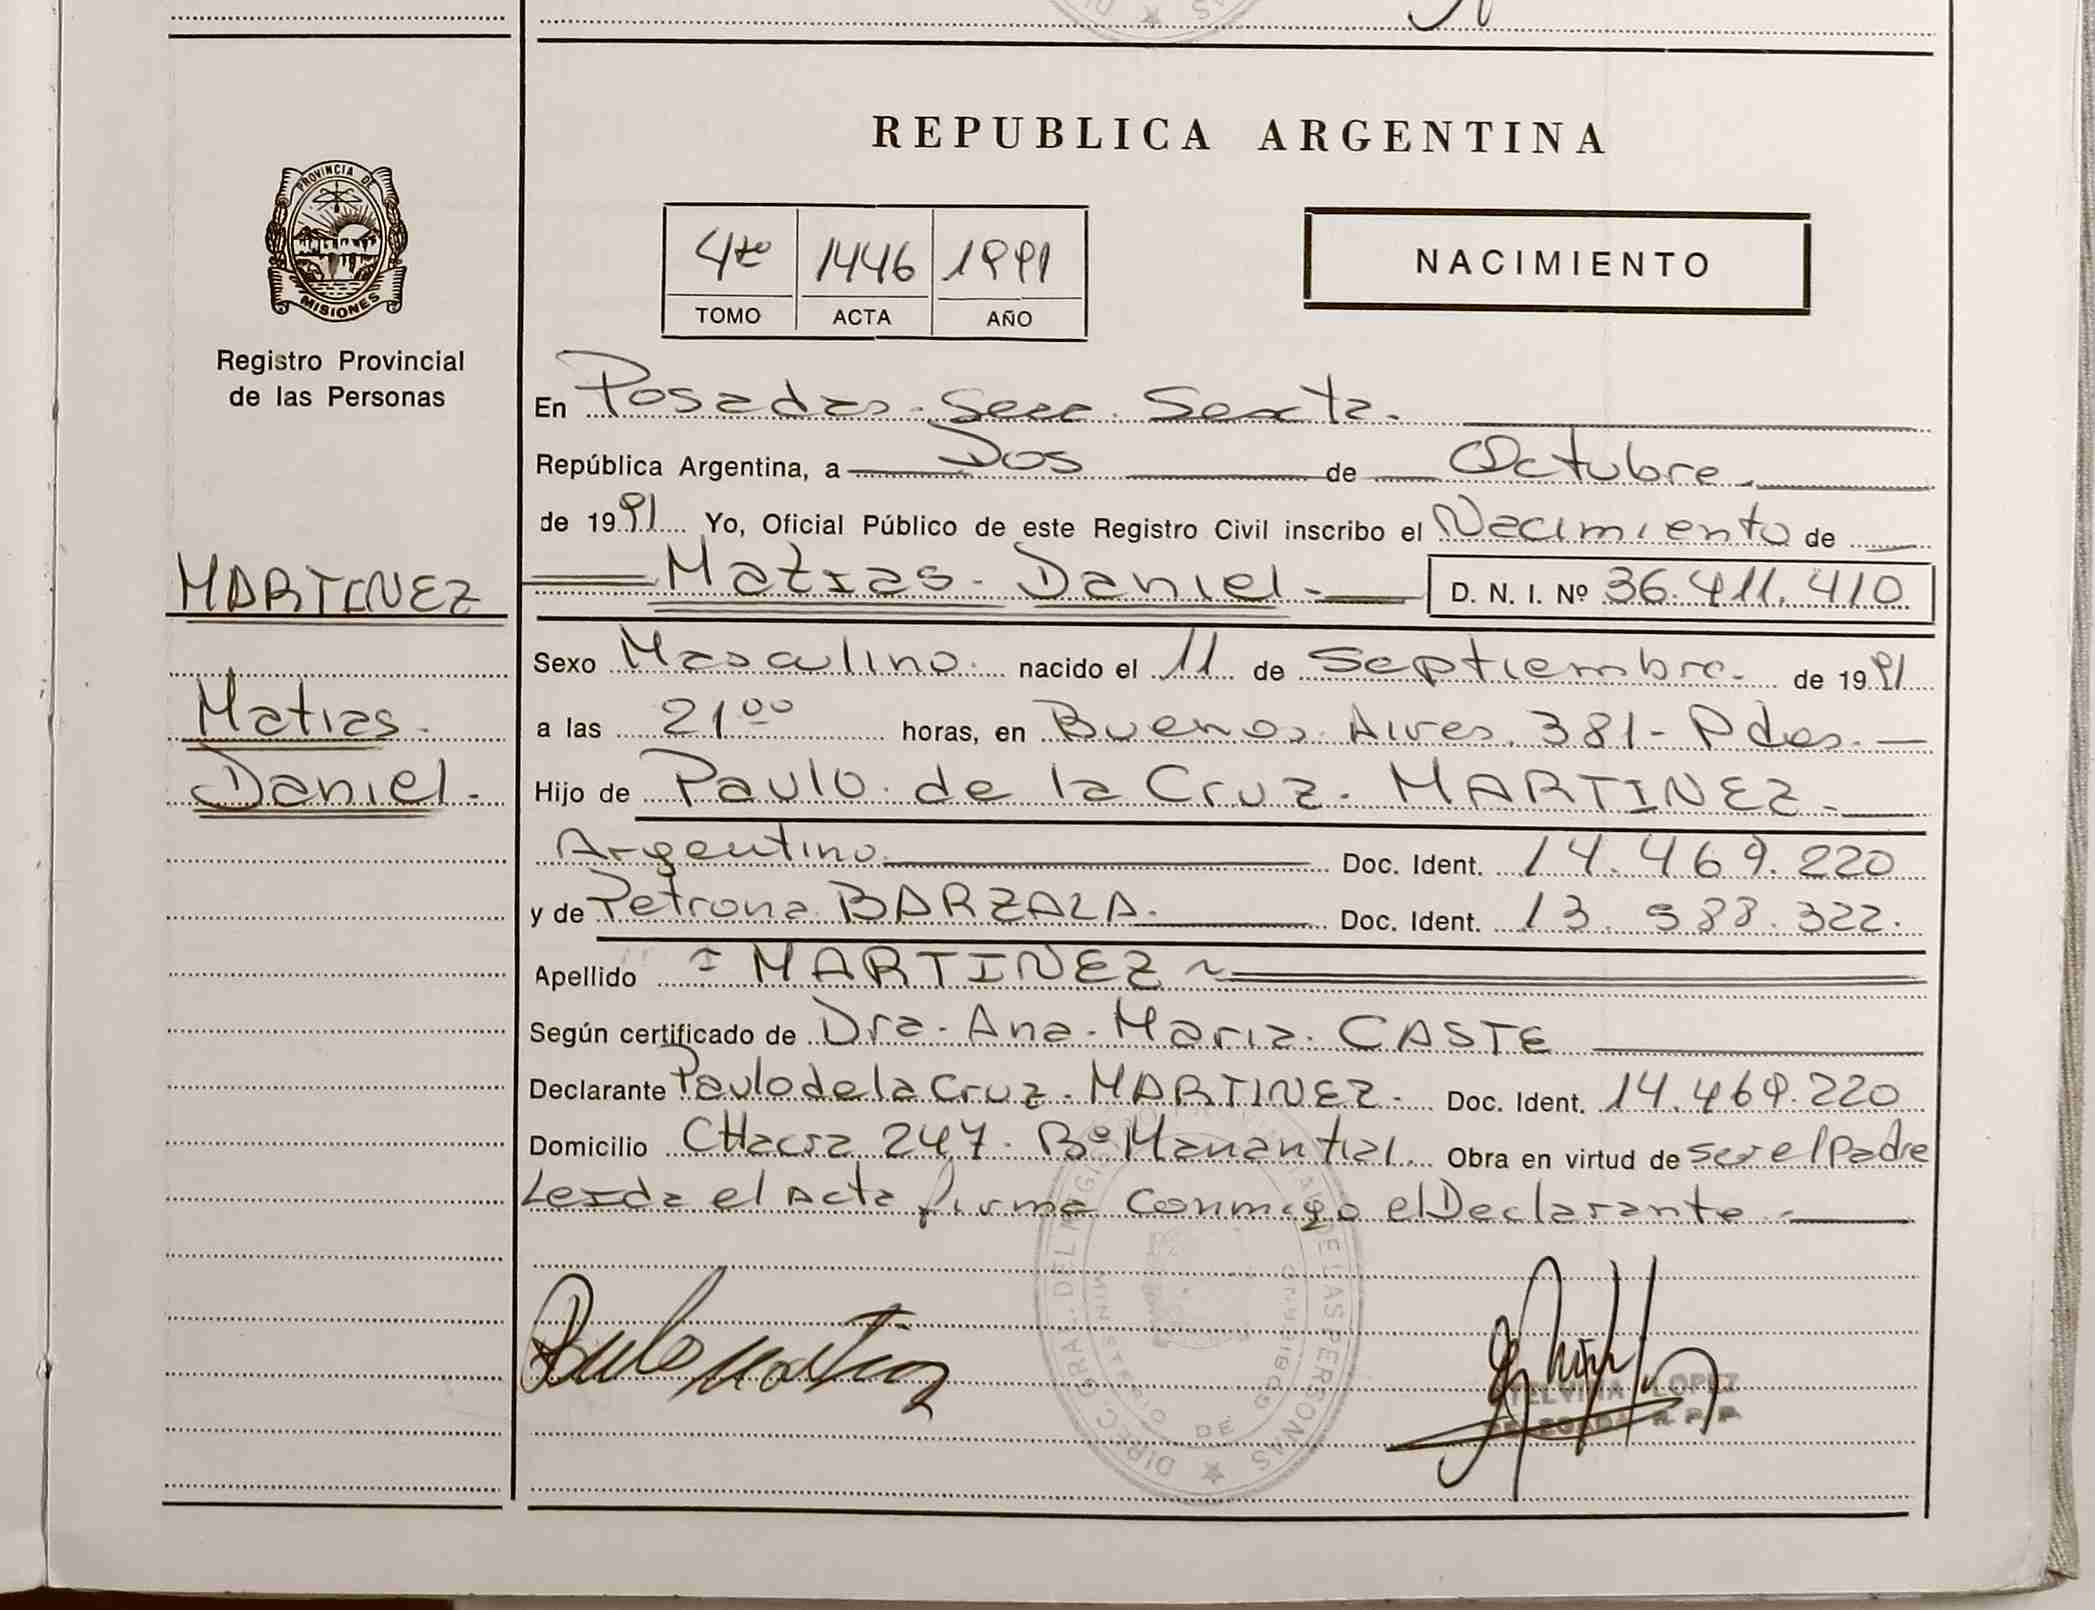 PROVINCIA DE
MISIONES
Registro Provincial
de las Personas
MARTINEZ
Matias
Daniel.
REPUBLICA ARGENTINA
4to 1446 1991
TOMO ACTA AÑO
NACIMIENTO
En Posadas. Secc. Sexta.
República Argentina, a Dos de Octubre.
de 1991 Yo, Oficial Público de este Registro Civil inscribo el Nacimiento de
Matias. Daniel D. N. I. Nº 36.411.410
Sexo Masculino. nacido el 11 de Septiembre. de 1991
a las 21 00 horas, en Buenos Aires. 381 - Pdas.
Hijo de Paulo de la Cruz. MARTINEZ
Argentino Doc. Ident. 14.469.220
y de Petrona BARZALA. Doc. Ident. 13.588.322.
Apellido MARTINEZ
Según certificado de Dra. Ana. Maria. CASTE
Declarante Paulo de la Cruz. MARTINEZ. Doc. Ident. 14.469.220
Domicilio CHacra 247. Bº Manantial. Obra en virtud de ser el Padre
Leida el Acta firma conmigo el Declarante
DIREC. GRAL. DEL DE LAS PERSONAS
MINISTERIO DE GOBIERNO
Paulo Martinez
TELVINA LOPEZ
DELEGADA R. P. P.